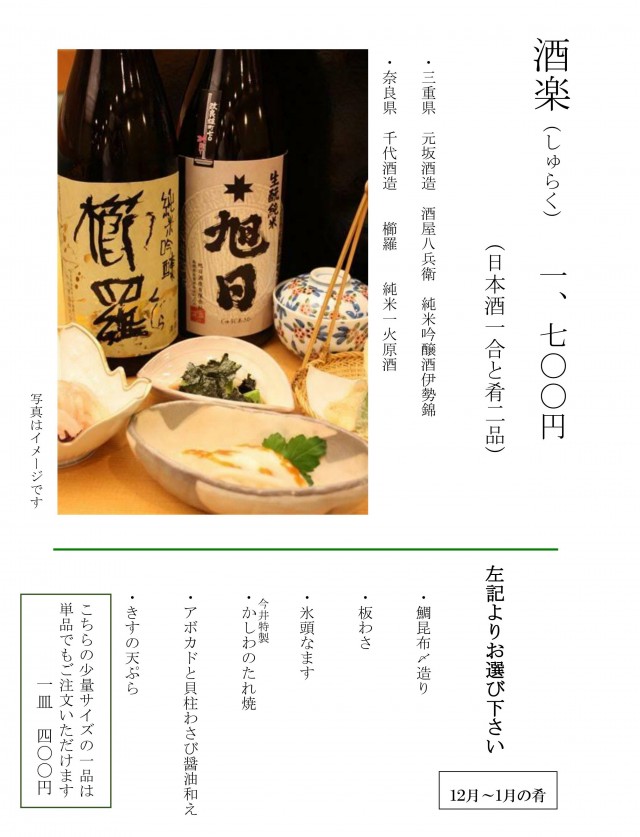 酒楽（しゅらく）　一、七〇〇円
（日本酒一合と肴二品）
・三重県　元坂酒造　酒屋八兵衛　純米吟醸酒伊勢錦
・奈良県　千代酒造　櫛羅　純米一火原酒
生酛純米
旭日
純米吟醸
くじら
櫛羅
写真はイメージです
左記よりお選び下さい
12月～1月の肴
・鯛昆布〆造り
・板わさ
・氷頭なます
今井特製
・かしわのたれ焼
・アボカドと貝柱わさび醤油和え
・きすの天ぷら
こちらの少量サイズの一品は
単品でもご注文いただけます
一皿　四〇〇円